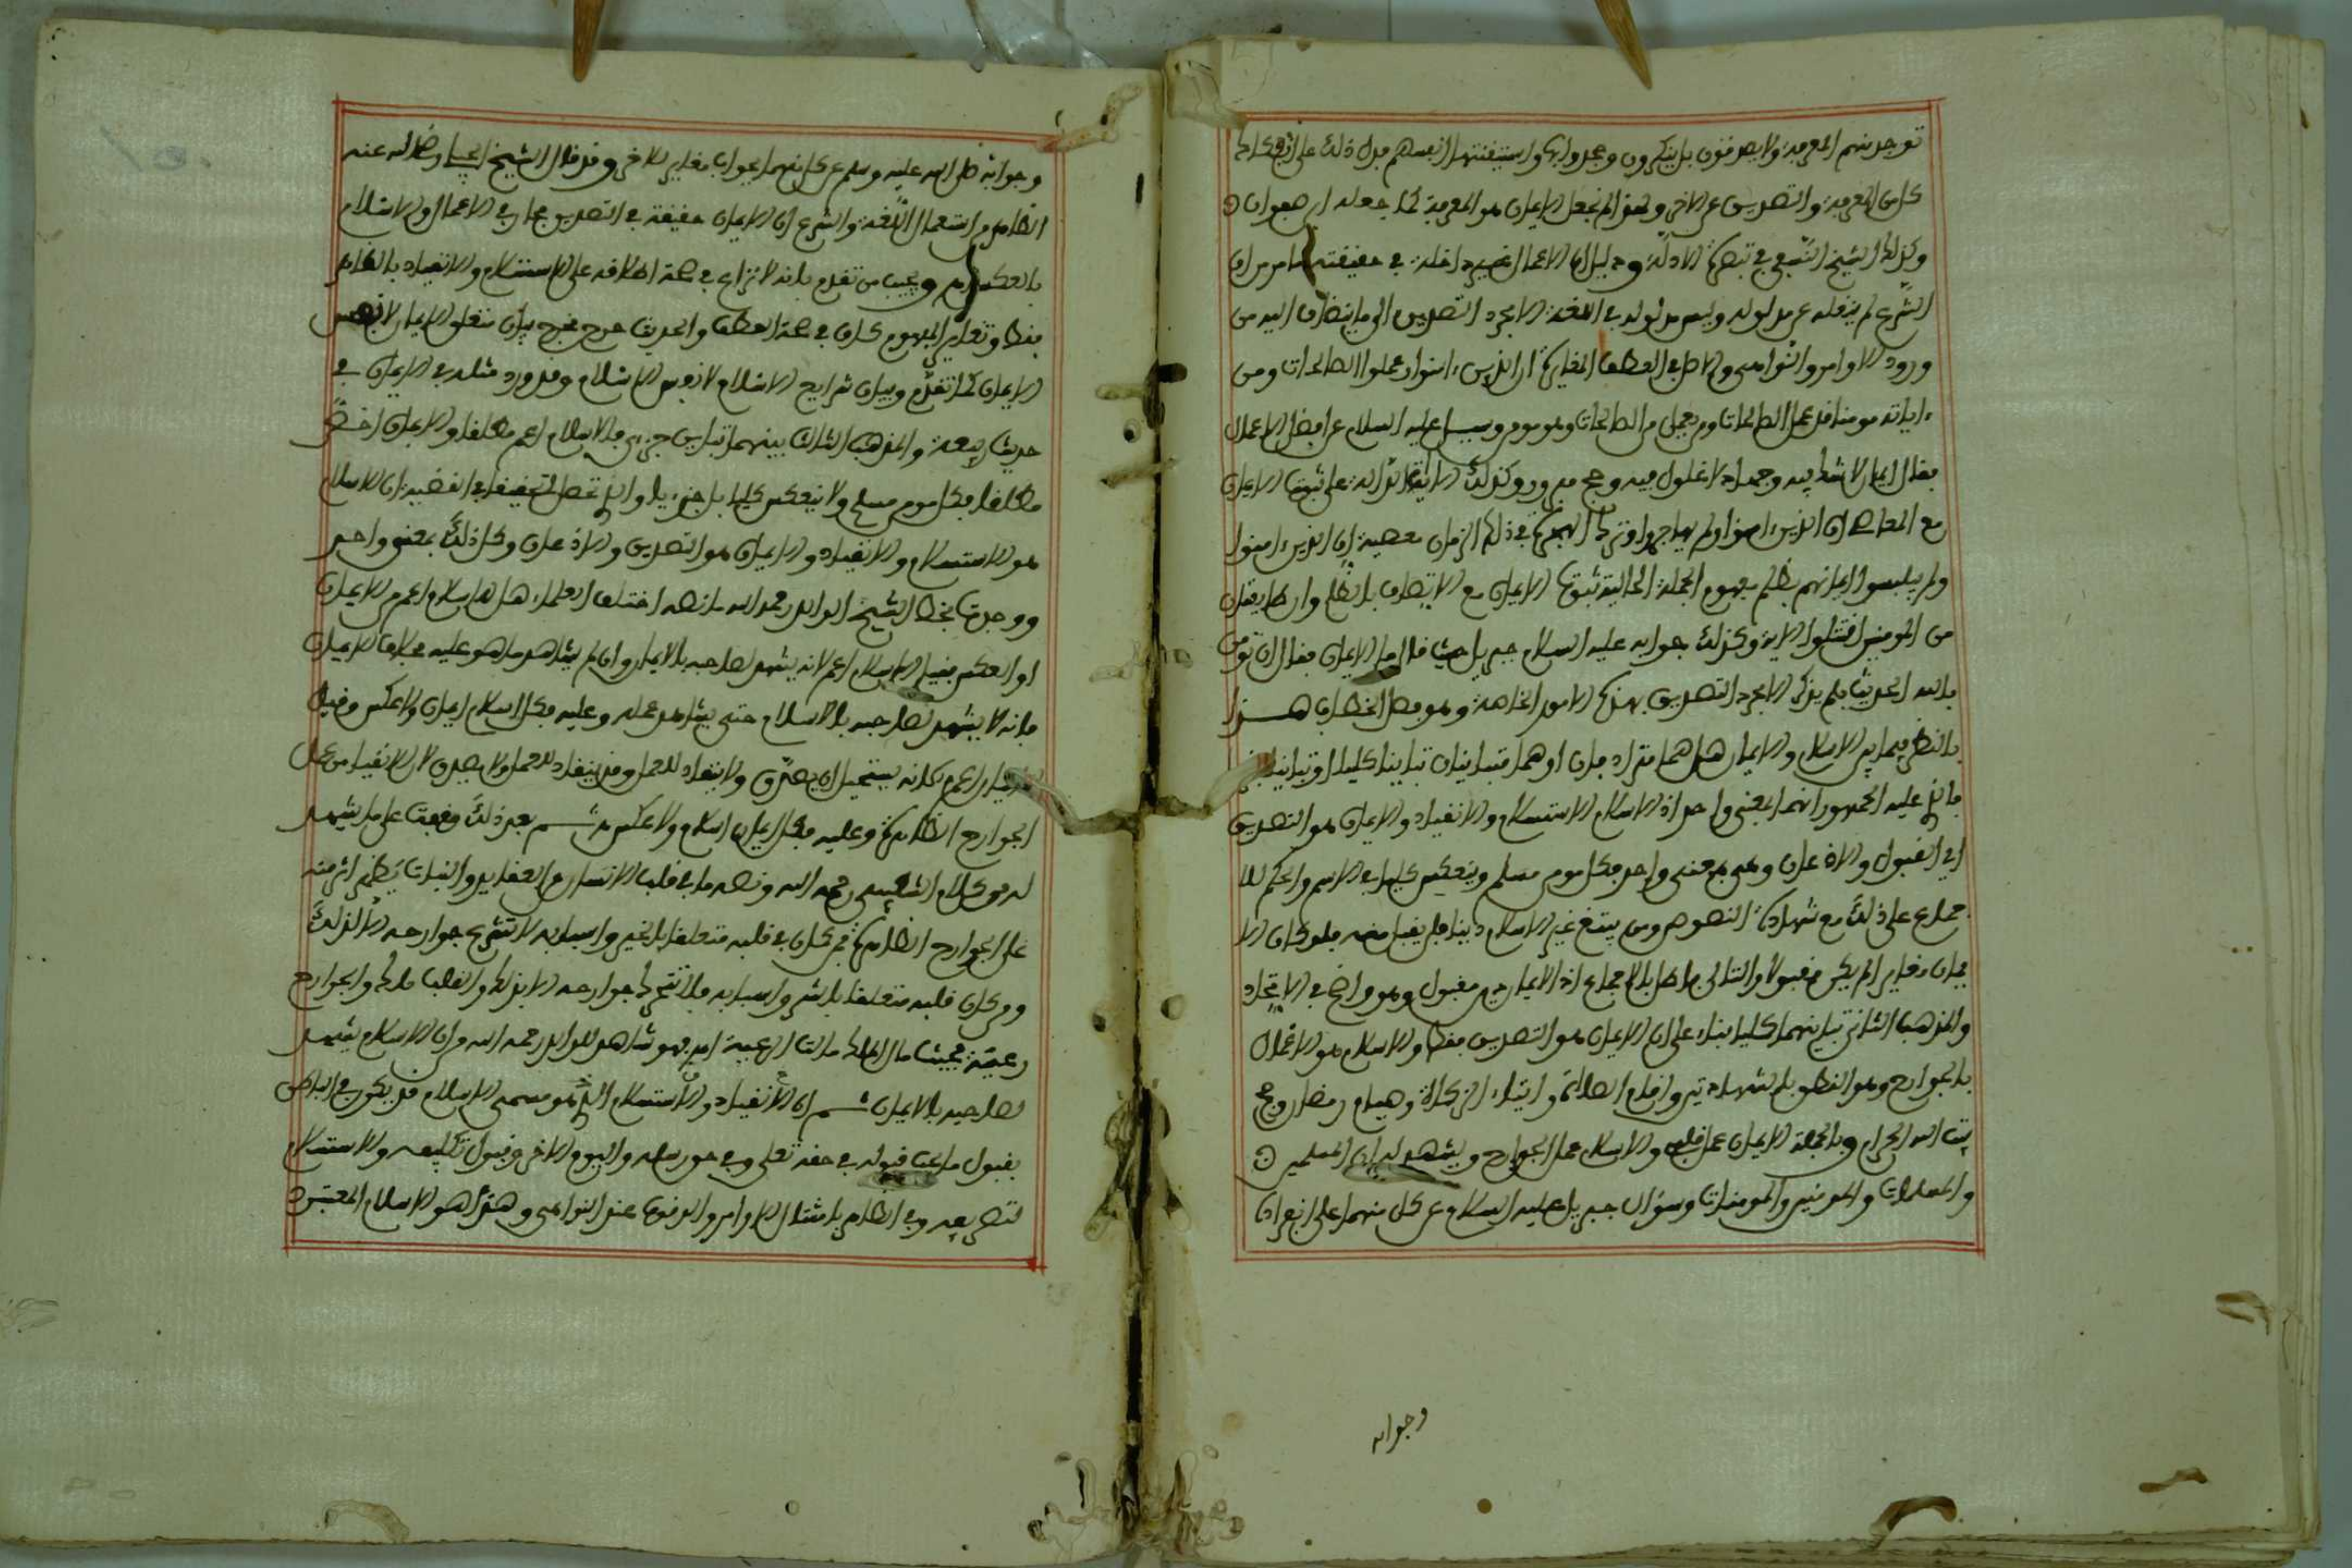 توجد منهم المعرفة ولا يصدقون بل ينكرون وجحدوا بها واستيقنتها انفسهم فدل ذلك على انفكاك
كل من المعرفة والتصديق عن الاخر ولهذا لم نجعل الايمان هو المعرفة كما جعله ابن صفوان
وكذلك الشيخ النسفي في تبصرة الادلة ودليل ان الاعمال غير داخلة في حقيقته ما مر من ان
الشرع لم ينقله عن مدلوله وليس مدلوله في اللغة الا مجرد التصديق الى ما ينضاف اليه من
ورود الاوامر والنواهي والاصل في العطف المغايرة ان الذين ءامنوا وعملوا الصالحات ومن
ياته مومنا قد عمل الصالحات ومن يعمل من الصالحات وهو مومن وسيل عليه السلام عن افضل الاعمال
فقال ايمان لا شك فيه وجهاد لا غلول فيه وحج مبرور وكذلك الايات الدالة على ثبوت الايمان
مع المعاصي ان الذين ءامنوا ولم يهاجروا وترك الهجرة في ذلك الزمان معصية ان الذين ءامنوا
ولم يلبسوا ايمانهم بظلم مفهوم الجملة الحالية ثبوت الايمان مع الاتصاف بالظلم وان طايفتان
من المومنين اقتتلوا الاية وكذلك جوابه عليه السلام جبريل حيث قال ما الايمان فقال ان تومن
بالله الحديث فلم يذكر الا مجرد التصديق بهذه الامور الخاصة وهو فصل الخطاب هذا
بالنظر فيما بين الاسلام والايمان هل هما مترادفان او هما متباينان تباينا كليا او تباينا
فالذي عليه الجمهور انهما لمعنى واحد اذ الاسلام الاستسلام والانقياد والايمان هو التصديق
اي القبول والاذعان وهي بمعنى واحد فكل مومن مسلم وينعكس كليا في الاسم والحكم للا
جماع على ذلك مع شهادة النصوص ومن يبتغ غير الاسلام دينا فلن يقبل منه فلو كان الا
يمان مغايرا لم يكن مقبولا والتالي باطل بالاجماع اذ الايمان مقبول وهو واضح في الاتحاد
والمذهب الثاني تباينهما كليا بناء على ان الايمان هو التصديق فقط والاسلام هو الاعمال
بالجوارح وهو النطق بالشهادتين واقام الصلاة وايتاء الزكاة وصيام رمضان وحج
بيت الله الحرام وبالجملة الايمان عمل قلب والاسلام عمل الجوارح ويشهد له ان المسلمين
والمسلمات والمومنين والمومنات وسؤال جبريل عليه السلام عن كل منهما على انفراد
وجوابه
وجوابه صلى الله عليه وسلم عن كل منهما بجواب مغاير للاخر وقد قال الشيخ رضي الله عنه
الظاهر من استعمال اللغة والشرع ان الايمان حقيقة في التصديق مجاز في الاعمال والاسلام
بالعكس ويجيب من تقدم بانه لا نزاع في صحة اطلاقه على الاستسلام والانقياد بالظاهر
فقط وتغاير المفهوم كان في صحة العطف والحديث خرج مخرج بيان متعلق الايمان لا نفس
الايمان كما تقدم وبيان شرايع الاسلام لا نفس الاسلام وقد ورد مثله في الايمان في
حديث ربيعة والمذهب الثالث بينهما تباين جزءي فالاسلام اعم مطلقا والايمان اخص
مطلقا فكل مومن مسلم ولا ينعكس كليا بل جزءيا والذي تحصل التحقيق في القضية ان الاسلام
هو الاستسلام والانقياد والايمان هو التصديق والاذعان وكل ذلك بمعنى واحد
ووجدت بخط الشيخ الوالد رحمه الله ما نصه اختلف العلماء هل الاسلام اعم من الايمان
او العكس فقيل الاسلام اعم لانه يشهد لصاحبه بالايمان وان لم يشاهد ما هو عليه بخلاف الايمان
فانه لا يشهد لصاحبه بالاسلام حتى يشاهد عمله وعليه فكل اسلام ايمان ولا عكس وقيل
الايمان اعم لانه يستحيل ان يصدق ولا ينقاد للعمل وقد ينقاد للعمل ولا يصدق لان الانقياد من عمل
الجوارح الظاهرة وعليه فكل ايمان اسلام ولا عكس ثم بعد ذلك وقفت على ما يشهد
له من كلام رحمه الله ونصه ما في قلب الانسان من العقايد والنيات يظهر اثر منه
على الجوارح الظاهرة فمن كان في قلبه متعلقا بالخير واسبابه لا تتحرك جوارحه الا لذلك
ومن كان قلبه متعلقا بالشر واسبابه فلا تتحرك جوارحه الا بذلك والقلب ملك والجوارح
رعية فحيث مال الملك مالت الرعية فهو شاهد للوالد رحمه الله من ان الاسلام يشهد
لصاحبه بالايمان ثم ان الانقياد والاستسلام الذي هو مسمى الاسلام قد يكون في الباطن
بقبول ما يجب قبوله في حقه تعلى وفي حق رسله واليوم الاخر وقبول تكليفه والاستسلام
لتصريفه وفي الظاهر بامتثال الاوامر والوقوف عند النواهي وهذا هو الاسلام المعتبر